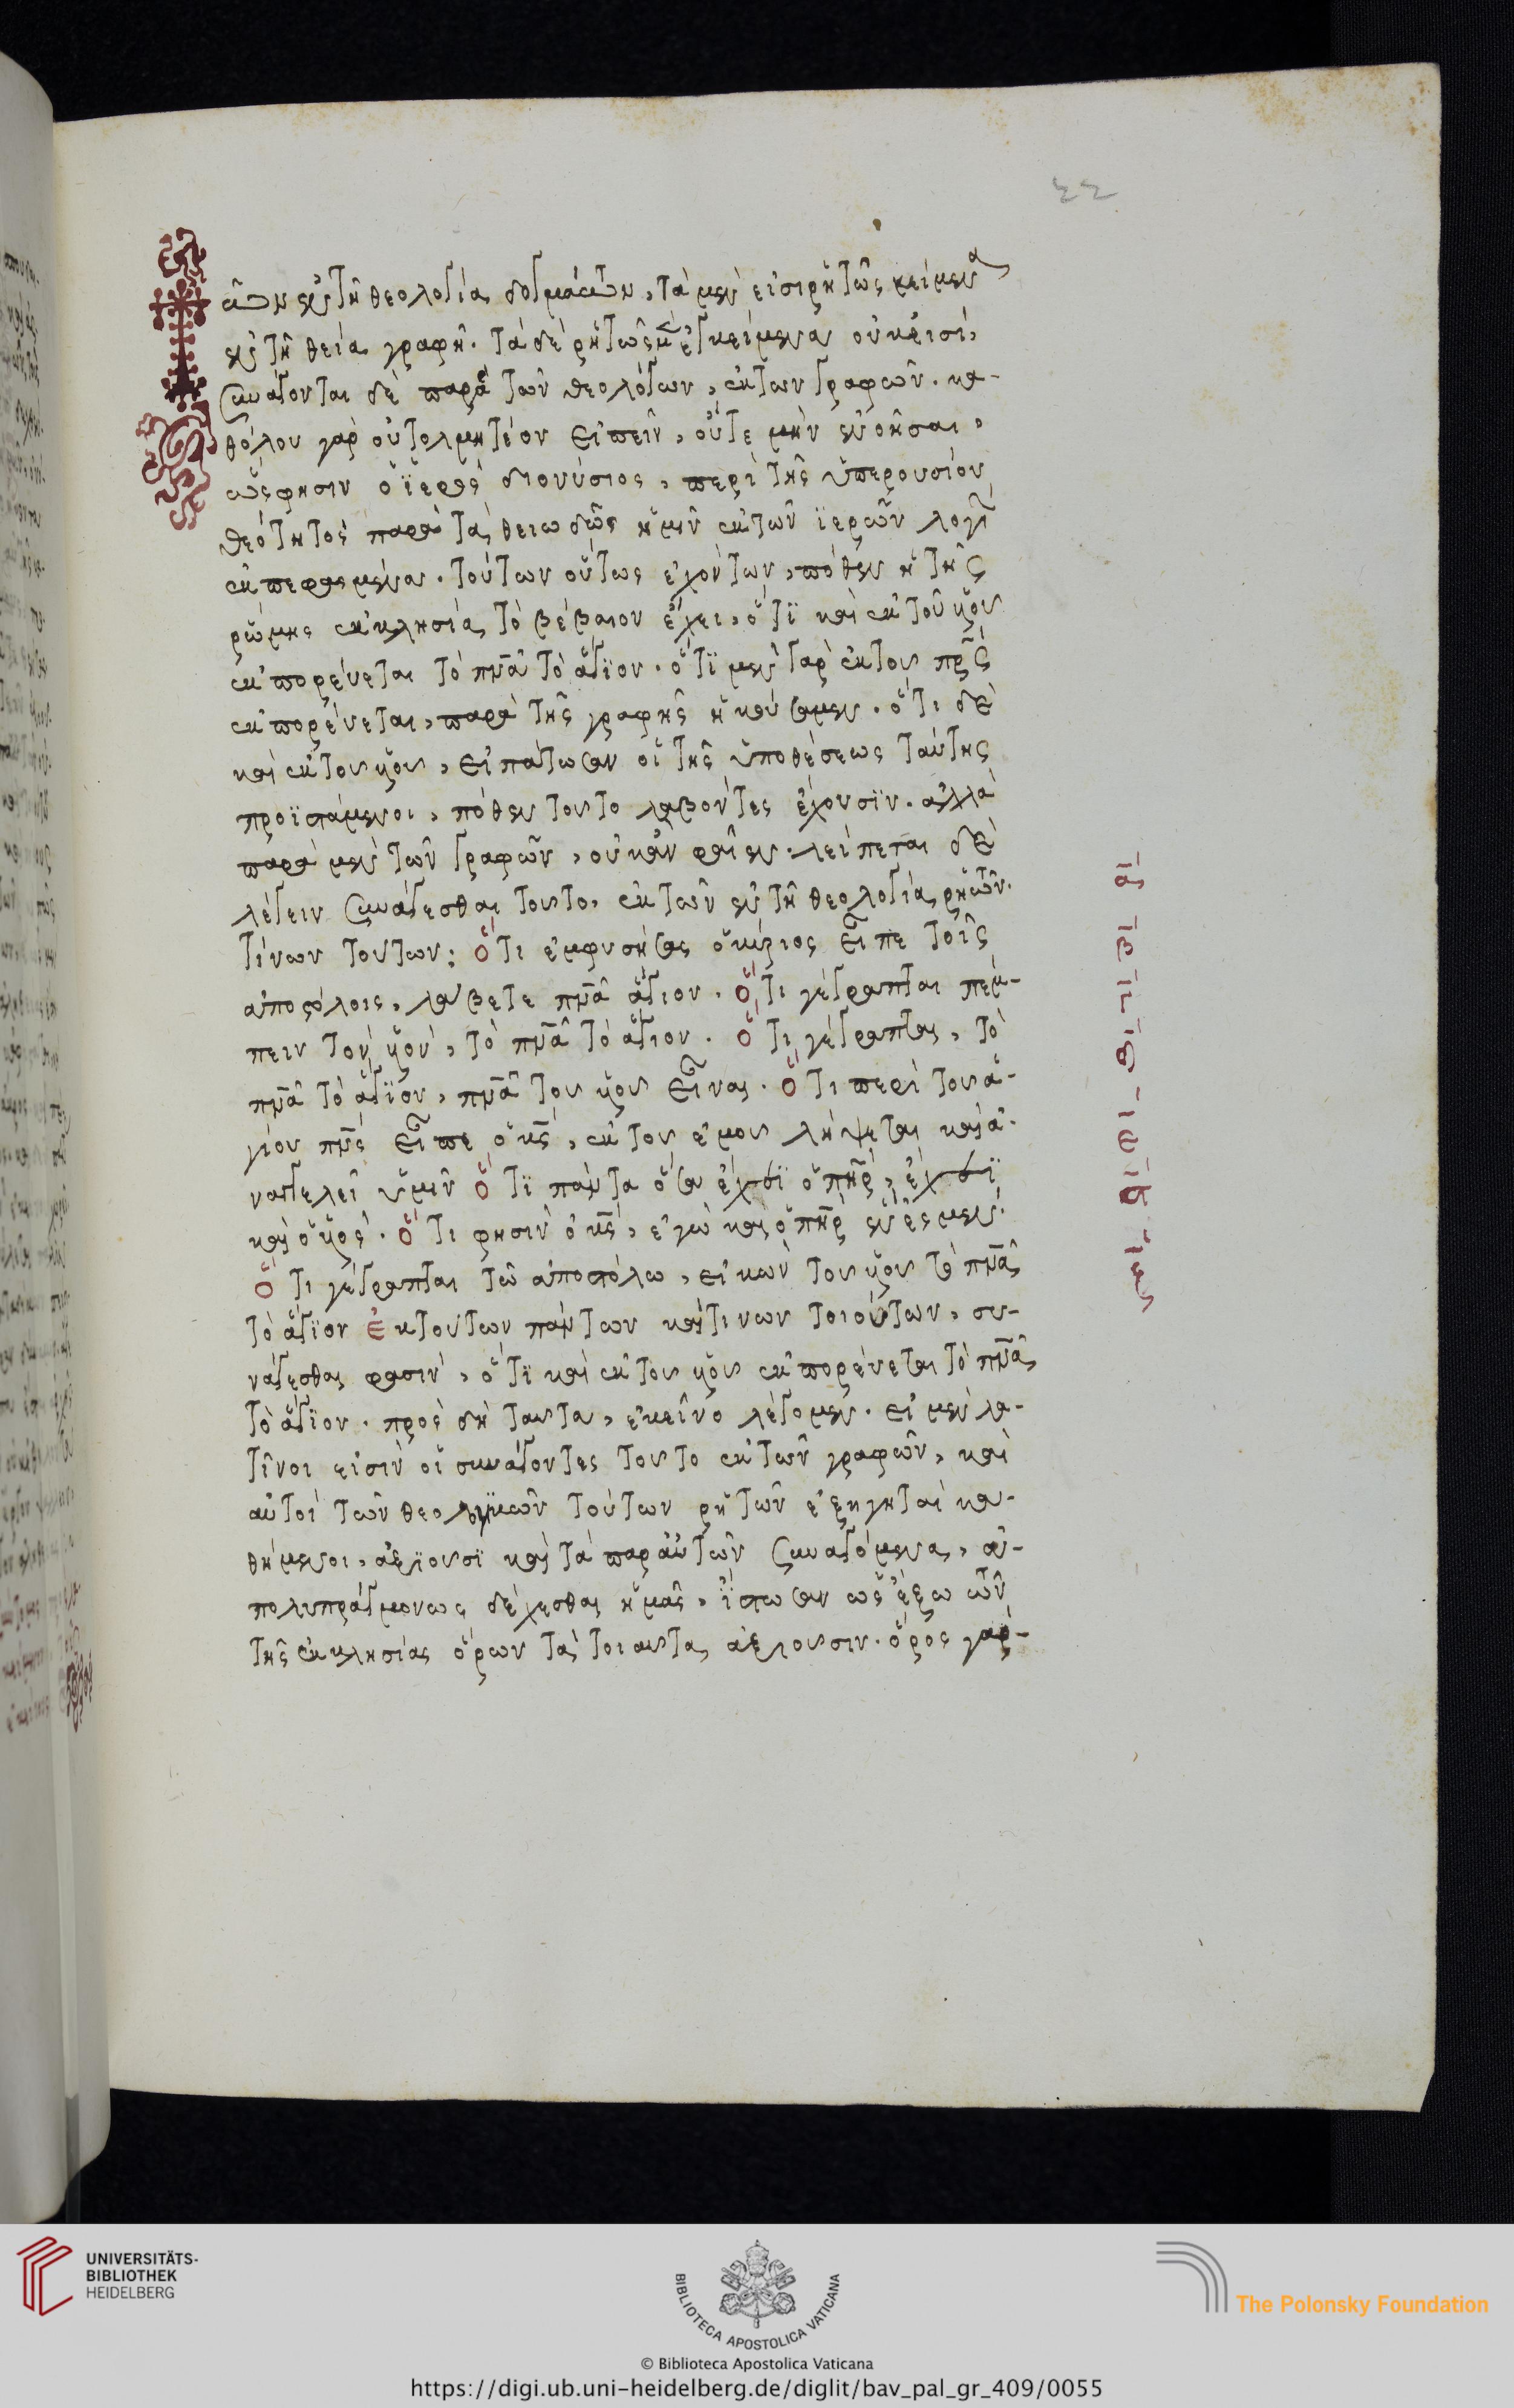 22
Τῶν ἐν τῆ θεολογία δογμάτων, τὰ μὲν εἰσι ρητῶς κείμενα
ἐν τῆ θεία γραφῆ. τὰ δὲ ρητῶς μὲν ἐγκείμενα οὐκ εἰσὶ,
συνάγονται δὲ παρὰ τῶν θεολόγων, ἐκ τῶν γραφῶν. κα-
θόλου γὰρ οὐ τολμητέον εἰπεῖν, οὔτε μὴν ἐννοῆσαι,
ὥς φησιν ὁ ϊερὸς διονύσιος, περὶ τῆς ὑπερουσίου
θεότητος παρὰ τὰ θειωδῶς ἡμῖν ἐκ τῶν ϊερῶν λογί
ἐκπεφασμένα. τούτων οὕτως ἐχόντων, πόθεν ἡ τῆς
ρώμης ἐκκλησία τὸ βέβαιον ἔχει, ὅτϊ καὶ ἐκ τοῦ υἱοῦ
ἐκπορεύεται τὸ πνᾶ τὸ ἅγϊον. ὅτϊ μὲν γὰρ ἐκ τοῦ πρς
ἐκπορεύεται, παρὰ τῆς γραφῆς ἠκούσαμεν. ὅτι δὲ
καὶ ἐκ τοῦ υἱοῦ, εἰπάτωσαν οἱ τῆς ὑποθέσεως ταύτης
προϊστάμενοι, πόθεν τοῦτο λαβόντες ἔχουσϊν. ἀλλὰ
παρὰ μὲν τῶν γραφῶν, οὐκ ἂν φαῖεν. λείπεται δὲ
λέγειν συνάγεσθαι τοῦτο, ἐκ τῶν ἐν τῆ θεολογία ρητῶν.
τίνων τούτων; ὅτι ἐμφυσήσας ὁ κύριος εἶπε τοῖς
ἀποστόλοις, λάβετε πνᾶ ἅγιον. ὅτι γέγραπται πέμ-
πειν τὸν υἱὸν, τὸ πνᾶ τὸ ἅγιον. ὅτι γέγραπται, τὸ
πνᾶ τὸ ἅγϊον, πνᾶ τοῦ υἱοῦ εἶναι. ὅτι περὶ τοῦ ἁ-
γίου πνς εἶπε ὁ κς, ἐκ τοῦ ἐμοῦ λήψεται καὶ ἀ-
ναγγελεῖ ὑμῖν ὅτϊ πάντα ὅσα ἔχει ὁ πηρ, ἔχει
καὶ ὁ υἱὸς. ὅτι φησὶν ὁ κς, ἐγὼ καὶ ὁ πηρ ἕν ἐσμεν.
ὅτι γέγραπται τῶ ἀποστόλω, εἰκὼν τοῦ υἱοῦ τὸ πνᾶ
τὸ ἅγϊον ἐκ τούτων πάντων καὶ τινων τοιούτων, συ-
νάγεσθαι φασὶν, ὅτϊ καὶ ἐκ τοῦ υἱοῦ ἐκπορεύεται τὸ πνᾶ
τὸ ἅγϊον. πρὸς δὴ ταῦτα, ἐκεῖνο λέγομεν. εἰ μὲν λα-
τῖνοι εἰσὶν οἱ συνάγοντες τοῦτο ἐκ τῶν γραφῶν, καὶ
αὐτοὶ τῶν θεολογικῶν τούτων ρητῶν ἐξηγηταὶ κα-
θήμενοι, ἀξιοῦσϊ καὶ τὰ παρ αὐτῶν συναγόμενα, ἀ-
πολυπραγμόνως δέχεσθαι ἡμᾶς, ἴστωσαν ὡς ἔξω τῶν
τῆς ἐκκλησίας ὅρων τὰ τοιαῦτα ἀξιοῦσιν. ὅρος γὰρ